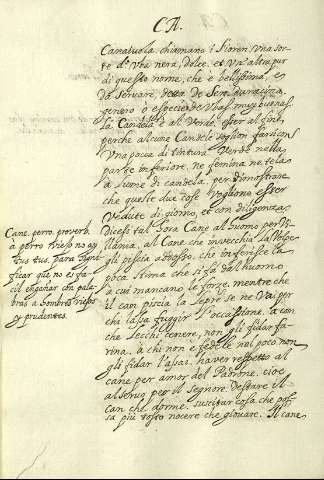 CA.
Canaiuola chiamano i Fioren. Vna sor-
te d'Vua nera, dolce, et Vn'altra pur
di questo nome, che è bellissima,
da seruare, detta
genero o especie de Vbas muy buenas.
La Candela è al Verde. esser al fine,
perche alcune Candele soglion farsi con
Vna poca di tintura Verde nella
parte inferiore. ne femina ne tela
a lume di candela. per dimostrare
che queste due cose Vogliono esser
Vedute di giorno, et con diligenza
Dicesi tal hora Cane al huomo per Vil-
lania, al Cane che inuecchia la Volpe
gli piscia addosso, che inferisce la
poca stima che si fà dal huomo
à cui mancano le forze. mentre che
il can piscia la Lepre se ne Va. per
chi lassa fuggir l'occassione. à can
che lecchi cenere, non gli fidar fa-
rina. à chi non è fedele nel poco non
gli fidar l'assai. hauer rispetto al
cane per amor del Padrone. cioe
al seruo per il Segnore. Destare il
can che dorme. suscitar cosa che pos-
sa più tosto nocere che giouare. Il cane
Cane. perro. prouerb.
à perro Viejo no ay
tus tus. para signi-
ficar que no es fa-
cil engañar con pala-
bras a hombres viejos
y prudentes.